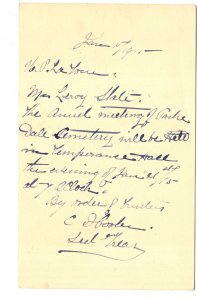 Jan 10/1915
H. P. La
Mrs Leroy Slate:
The Annul meeting of Parke
Dale Cemetery will be
in Temperance Hall
the evening of Jan 21st/15
at 7 Oclock
By order of Trustees
C
Sect Trear